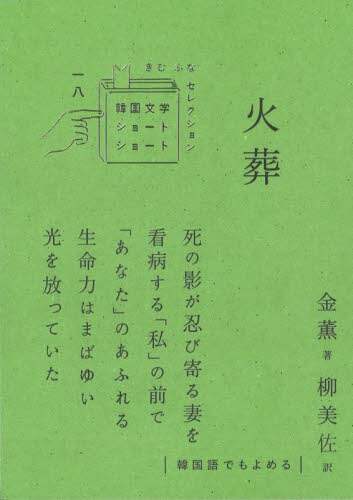 火葬
金薫 著 柳美佐 訳
死の影が忍び寄る妻を
看病する「私」の前で
「あなた」のあふれる
生命力はまばゆい
光を放っていた
きむ ふな
セレクション
韓国文学
ショート
ショート
一八
韓国語でもよめる